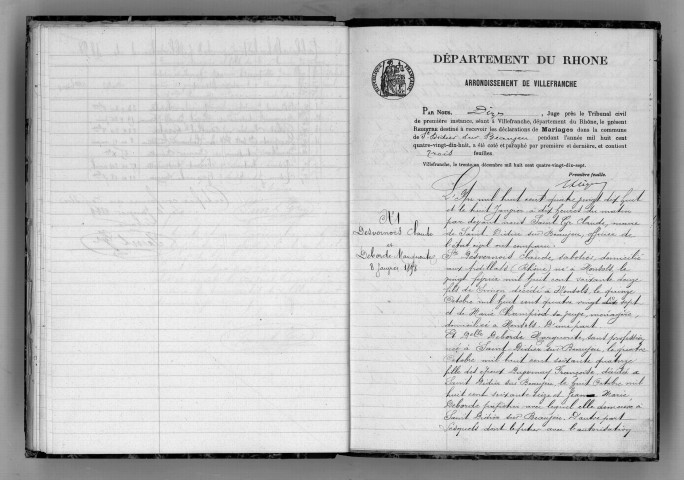 DÉPARTEMENT DU RHONE
ARRONDISSEMENT DE VILLEFRANCHE
RÉPUBLIQUE FRANÇAISE
PAR NOUS, , Juge près le Tribunal civil
de première instance, séant à Villefranche, département du Rhône, le présent
REGISTRE destiné à recevoir les déclarations de Mariages dans la commune
de St Didier sur Beaujeu pendant l'année mil huit cent
quatre-vingt-dix-huit, a été coté et paraphé par première et dernière, et contient
trois feuilles.
Villefranche, le trente un décembre mil huit cent quatre-vingt-dix-sept.
Première feuille.
L'An mil huit cent quatre vingt dix huit
et le huit Janvier à dix heures du matin
par devant nous Saint Cyr Claude, maire
de Saint Didier sur Beaujeu, officier de
l'état civil ont comparu
N° 1
Desvernois Claude
et
Deborde Marguerite
8 Janvier 1898
Desvernois Claude, sabotier, domicilié
aux Ardillats (Rhône) né à Monsols, le
vingt février mil huit cent soixante douze
fils de décédé à Monsols, le quinze
Octobre mil huit cent quatre vingt dix sept
et de Marie Champrod sa veuve, ménagère,
domiciliée à Monsols. D'une part
Et Delle Deborde Marguerite, sans profession,
née à Saint Didier sur Beaujeu, le quatre
Octobre mil huit cent soixante quatorze
fille des époux Dugonnay Françoise, décédée à
Saint Didier sur Beaujeu le huit Octobre mil
huit cent soixante seize et Jean Marie
Deborde propriétaire avec lequel elle demeure à
Saint Didier sur Beaujeu. D'autre part
Lesquels dont le futur avec l'autorisation